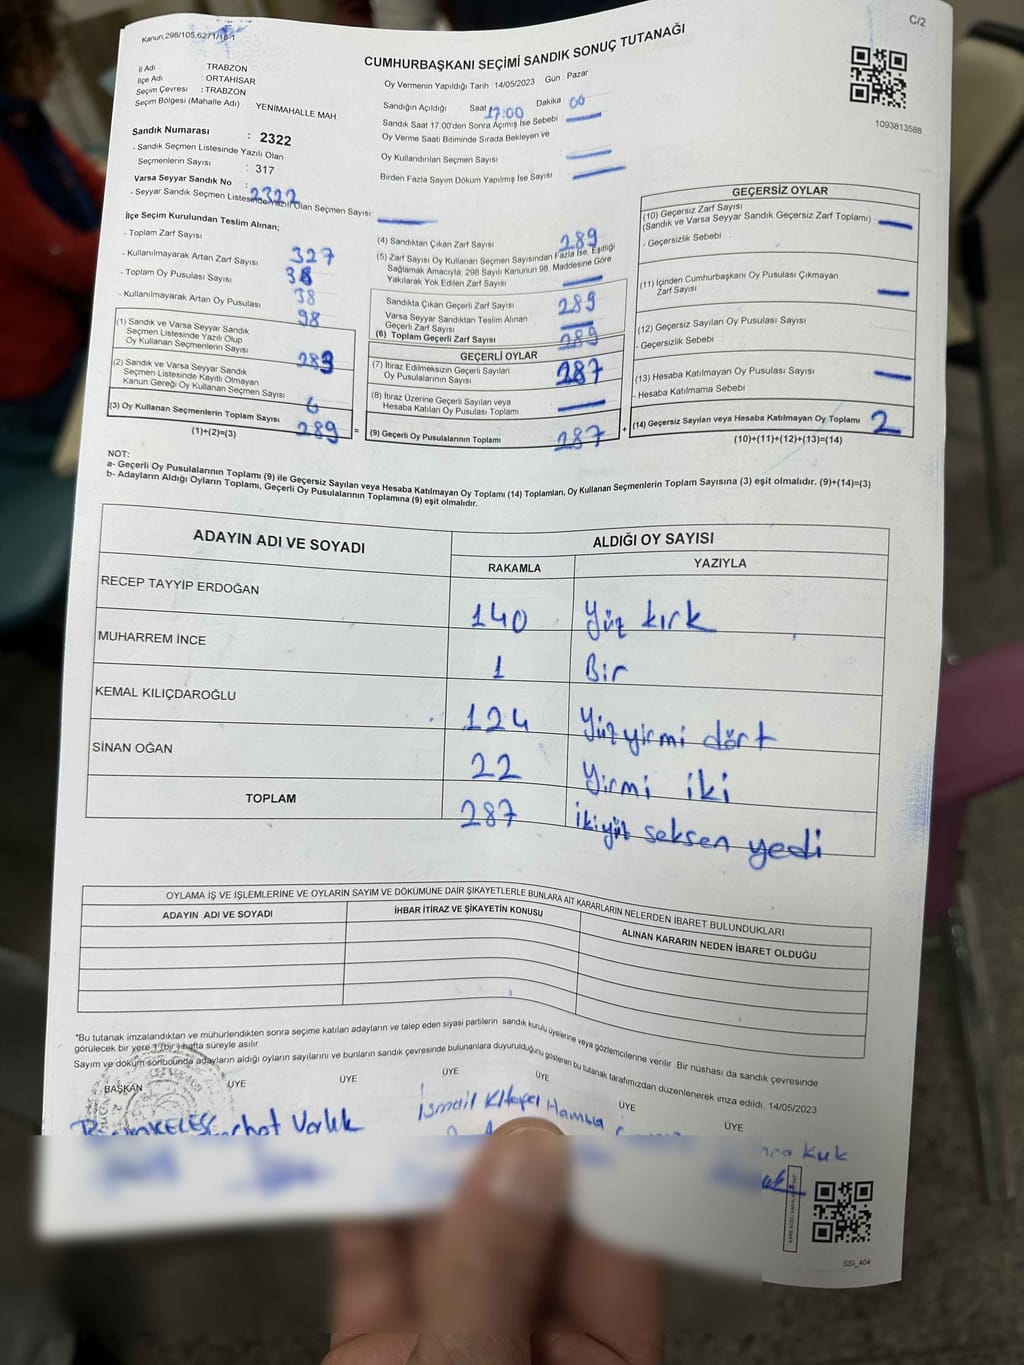 Kanun,298/105,6271/18-1
C/2
CUMHURBAŞKANI SEÇİMİ SANDIK SONUÇ TUTANAĞI
İl Adı : TRABZON
İlçe Adı : ORTAHİSAR
Seçim Çevresi : TRABZON
Seçim Bölgesi (Mahalle Adı) : YENİMAHALLE MAH.
Oy Vermenin Yapıldığı Tarih : 14/05/2023 Gün : Pazar
Sandığın Açıldığı Saat : 17:00 Dakika : 00
Sandık Saat 17.00'den Sonra Açımış İse Sebebi :
Oy Verme Saati Bitiminde Sırada Bekleyen ve
Oy Kullandırılan Seçmen Sayısı :
Birden Fazla Sayım Döküm Yapılmış İse Sayısı :
1093813588
Sandık Numarası : 2322
- Sandık Seçmen Listesinde Yazılı Olan
Seçmenlerin Sayısı : 317
Varsa Seyyar Sandık No : 2322
- Seyyar Sandık Seçmen Listesinde Yazılı Olan Seçmen Sayısı:
İlçe Seçim Kurulundan Teslim Alınan;
- Toplam Zarf Sayısı 327
- Kullanılmayarak Artan Zarf Sayısı 38
- Toplam Oy Pusulası Sayısı 38
- Kullanılmayarak Artan Oy Pusulası 98
(1) Sandık ve Varsa Seyyar Sandık
Seçmen Listesinde Yazılı Olup
Oy Kullanan Seçmenlerin Sayısı 283
(2) Sandık ve Varsa Seyyar Sandık
Seçmen Listesinde Kayıtlı Olmayan
Kanun Gereği Oy Kullanan Seçmen Sayısı 6
(3) Oy Kullanan Seçmenlerin Toplam Sayısı 289
(1)+(2)=(3)
(4) Sandıktan Çıkan Zarf Sayısı 289
(5) Zarf Sayısı Oy Kullanan Seçmen Sayısından Fazla İse, Eşitliği
Sağlamak Amacıyla, 298 Sayılı Kanunun 98. Maddesine Göre
Yakılarak Yok Edilen Zarf Sayısı
Sandıkta Çıkan Geçerli Zarf Sayısı 289
Varsa Seyyar Sandıktan Teslim Alınan
Geçerli Zarf Sayısı
(6) Toplam Geçerli Zarf Sayısı 289
GEÇERLİ OYLAR
(7) İtiraz Edilmeksizin Geçerli Sayılan
Oy Pusulalarının Sayısı 287
(8) İtiraz Üzerine Geçerli Sayılan veya
Hesaba Katılan Oy Pusulası Toplamı
= (9) Geçerli Oy Pusulalarının Toplamı 287 +
GEÇERSİZ OYLAR
(10) Geçersiz Zarf Sayısı
(Sandık ve Varsa Seyyar Sandık Geçersiz Zarf Toplamı)
- Geçersizlik Sebebi :
(11) İçinden Cumhurbaşkanı Oy Pusulası Çıkmayan
Zarf Sayısı
(12) Geçersiz Sayılan Oy Pusulası Sayısı
- Geçersizlik Sebebi :
(13) Hesaba Katılmayan Oy Pusulası Sayısı
- Hesaba Katılmama Sebebi :
(14) Geçersiz Sayılan veya Hesaba Katılmayan Oy Toplamı 2
(10)+(11)+(12)+(13)=(14)
NOT:
a- Geçerli Oy Pusulalarının Toplamı (9) ile Geçersiz Sayılan veya Hesaba Katılmayan Oy Toplamı (14) Toplamları, Oy Kullanan Seçmenlerin Toplam Sayısına (3) eşit olmalıdır. (9)+(14)=(3)
b- Adayların Aldığı Oyların Toplamı, Geçerli Oy Pusulalarının Toplamına (9) eşit olmalıdır.
ADAYIN ADI VE SOYADI ALDIĞI OY SAYISI
RAKAMLA YAZIYLA
RECEP TAYYİP ERDOĞAN 140 Yüz kırk
MUHARREM İNCE 1 Bir
KEMAL KILIÇDAROĞLU 124 Yüzyirmi dört
SİNAN OĞAN 22 Yirmi iki
TOPLAM 287 ikiyüz seksen yedi
OYLAMA İŞ VE İŞLEMLERİNE VE OYLARIN SAYIM VE DÖKÜMÜNE DAİR ŞİKAYETLERLE BUNLARA AİT KARARLARIN NELERDEN İBARET BULUNDUKLARI
ADAYIN ADI VE SOYADI İHBAR İTİRAZ VE ŞİKAYETİN KONUSU ALINAN KARARIN NEDEN İBARET OLDUĞU
*Bu tutanak imzalandıktan ve mühürlendikten sonra seçime katılan adayların ve talep eden siyasi partilerin sandık kurulu üyelerine veya gözlemcilerine verilir. Bir nüshası da sandık çevresinde
görülecek bir yere 1 (bir) hafta süreyle asılır.
Sayım ve döküm sonucunda adayların aldığı oyların sayılarını ve bunların sandık çevresinde bulunanlara duyurulduğunu gösteren bu tutanak tarafımızdan düzenlenerek imza edildi. 14/05/2023
BAŞKAN ÜYE ÜYE ÜYE ÜYE ÜYE ÜYE
Varlık İsmail Kitapçı Hamza
Kuk
SSİ_404